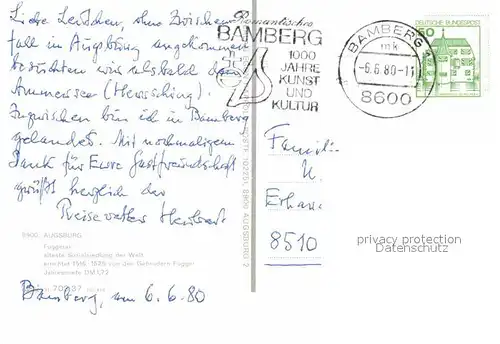 Liebe Leutchen, ohne Zwischen
fall in Augsburg angekommen
besuchten wir alsbald den
Ammersee (Herrsching).
Inzwischen bin ich in Bamberg
gelandet. Mit nochmaligem
Dank für Eure Gastfreundschaft
grüßt herzlich der
Reisevater Herbert
8900 AUGSBURG
Fuggerei
älteste Sozialsiedlung der Welt
errichtet 1516-1525 von den Gebrüdern Fugger
Jahresmiete DM 1,72
Bamberg, am 6.6.80
Romantisches
BAMBERG
1000
JAHRE
KUNST
UND
KULTUR
BAMBERG
mk
-6.6.80-11
8600
DEUTSCHE BUNDESPOST
8900 AUGSBURG 2
Familie
H.
8510
privacy protection
Datenschutz